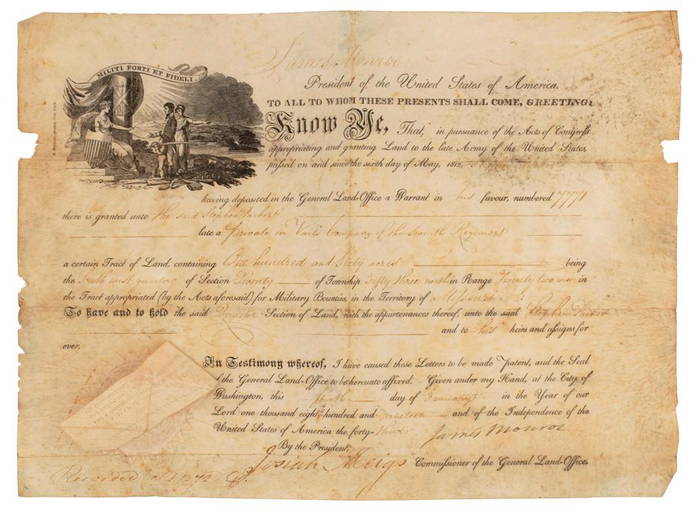 MILITI FORTI ET FIDELI
James Monroe
President of the United States of America.
TO ALL TO WHOM THESE PRESENTS SHALL COME, GREETING:
Know Ye, That, in pursuance of the Acts of Congress
appropriating and granting Land to the late Army of the United States,
passed on and since the sixth day of May, 1812,
having deposited in the General Land-Office a Warrant in his favour, numbered 7771
there is granted unto the said Stephen
late a private in Vail's Company of the Seventh Regiment
a certain Tract of Land, containing One hundred and Sixty acres being
the quarter of Section Twenty of Township fifty three north in Range Twenty two west in
the Tract appropriated (by the Acts aforesaid) for Military Bounties, in the Territory of Missouri
To have and to hold the said Quarter Section of Land, with the appurtenances thereof, unto the said Stephen
and to his heirs and assigns for
ever.
In Testimony whereof, I have caused these Letters to be made Patent, and the Seal
of the General Land-Office to be hereunto affixed. Given under my Hand, at the City of
Washington, this day of in the Year of our
Lord one thousand eight hundred and nineteen and of the Independence of the
United States of America the forty-third
By the President, James Monroe
Josiah Meigs Commissioner of the General Land-Office.
Recorded